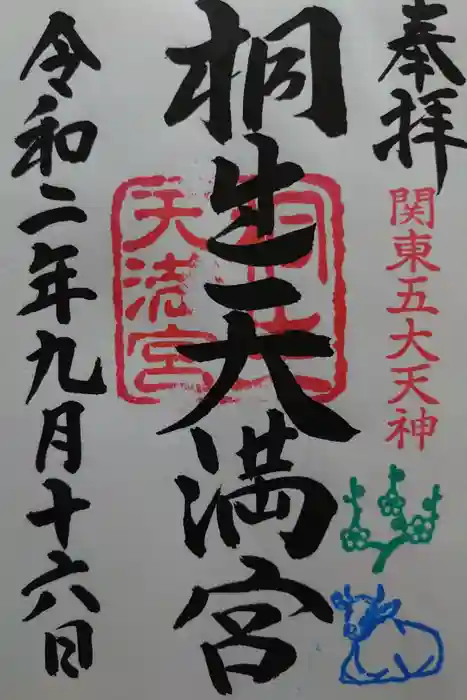 奉拝
関東五大天神
桐生天満宮
令和二年九月十六日